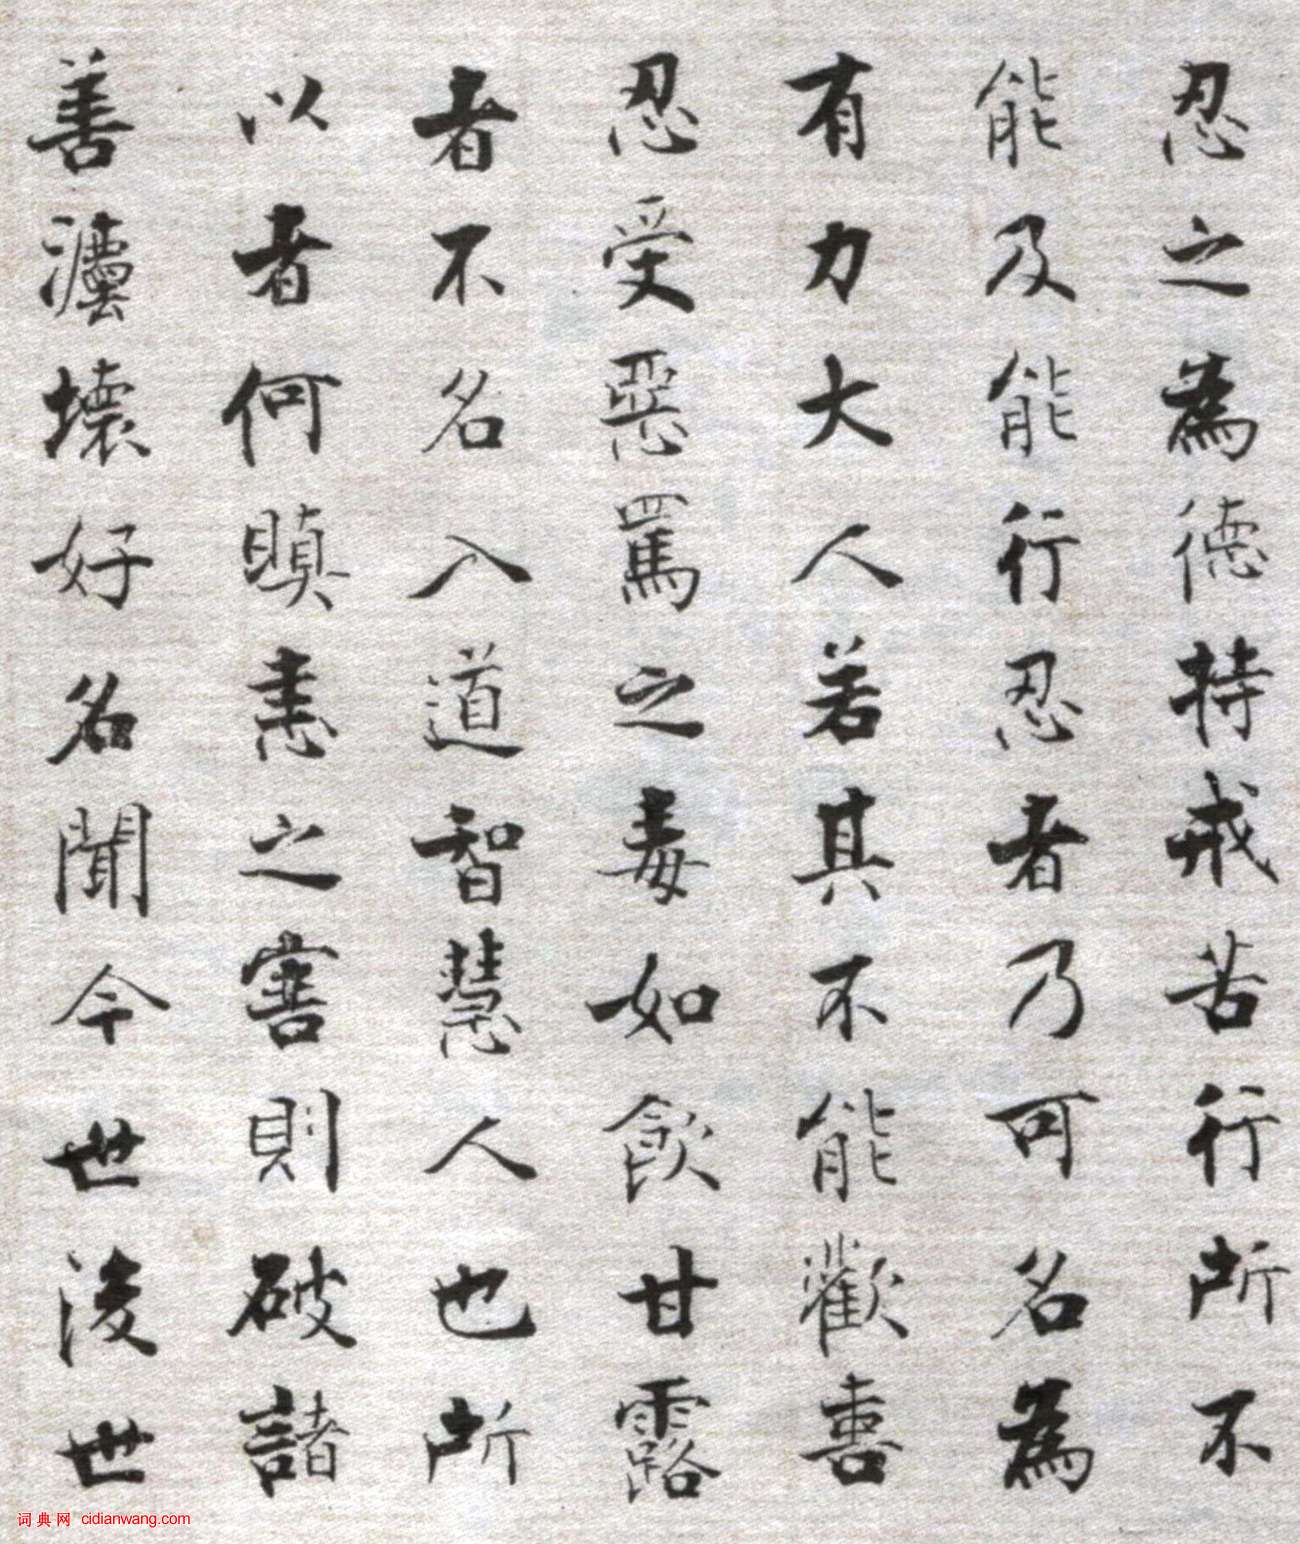 忍之為德持戒苦行所不
能及能行忍者乃可名為
有力大人若其不能歡喜
忍受惡罵之毒如飲甘露
者不名入道智慧人也所
以者何瞋恚之害則破諸
善灋壞好名聞今世後世
词典网 cidianwang.com